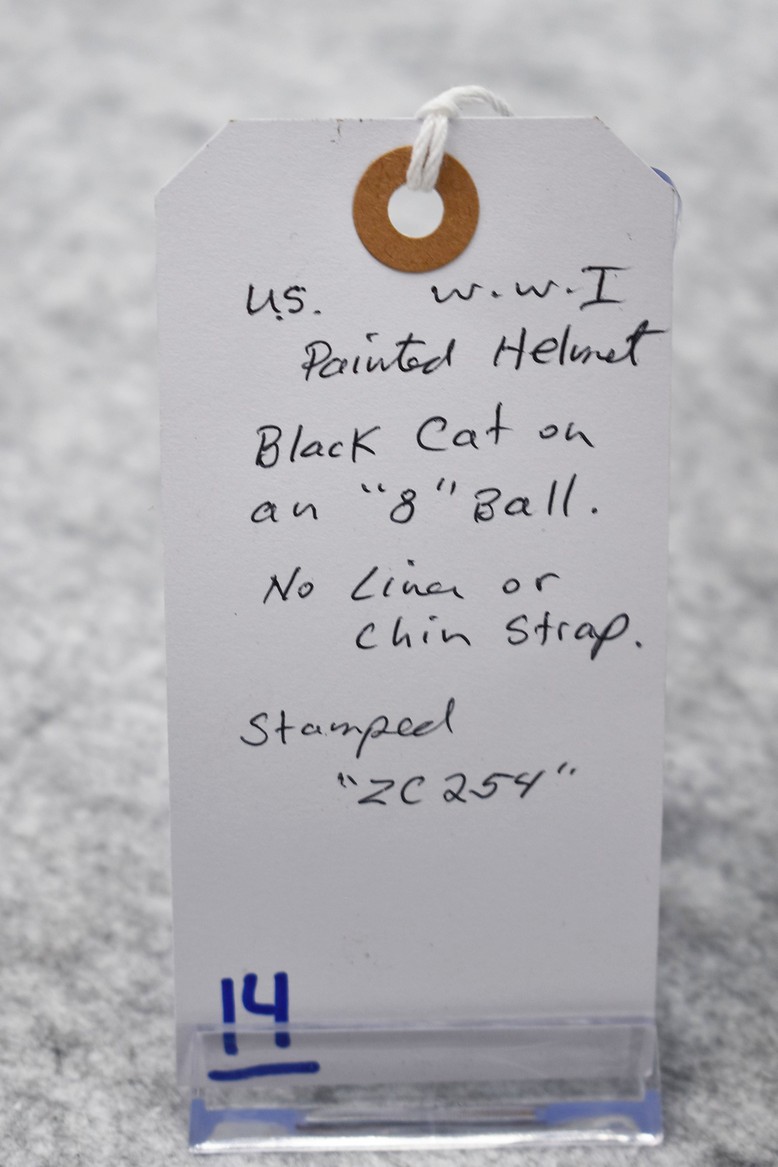 U.S. W.W.I
Painted Helmet
Black Cat on
an "8" Ball.
No Liner or
Chin Strap.
Stamped
"ZC254"
14